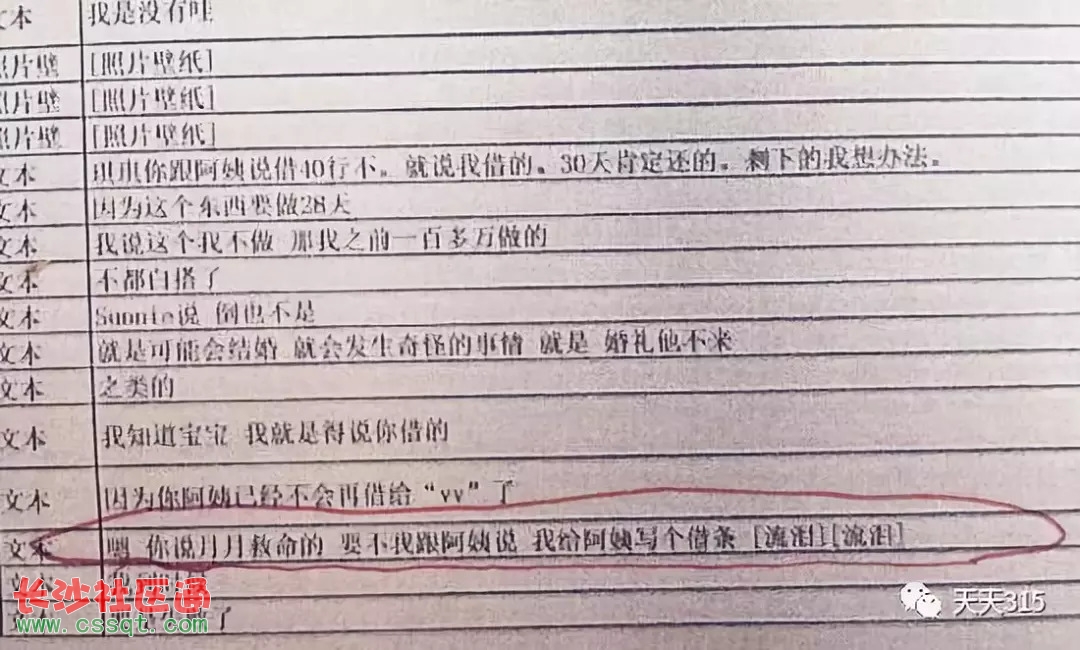 文本 我是没有哇
照片壁 [照片壁纸]
照片壁 [照片壁纸]
照片壁 [照片壁纸]
文本 琪琪你跟阿姨说借40行不。就说我借的。30天肯定还的。剩下的我想办法。
文本 因为这个东西要做28天
文本 我说这个我不做 那我之前一百多万做的
文本 不都白搭了
文本 说 倒也不是
文本 就是可能会结婚 就会发生奇怪的事情 就是 婚礼他不来
文本 之类的
文本 我知道宝宝 我就是得说你借的
文本 因为你阿姨已经不会再借给“vv”了
文本 嗯 你说月月救命的 要不我跟阿姨说 我给阿姨写个借条 [流泪][流泪]
文本
文本 了
长沙社区通
www.cssqt.com
天天315